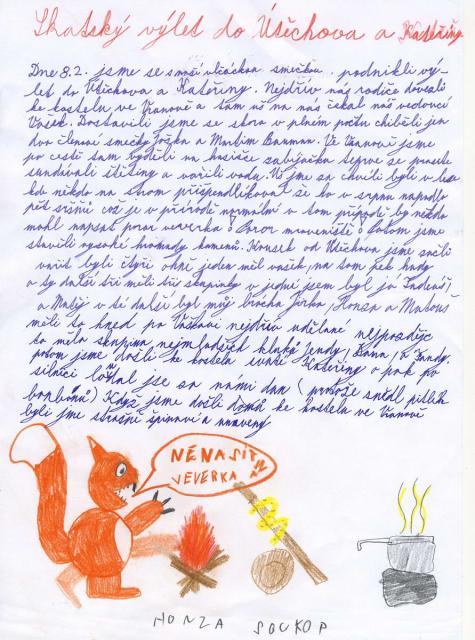 Skautský výlet do Útěchova a Kateřiny
Dne 8.2. jsme se smečkou podnikli vý-
let do Útěchova a Kateřiny. Nejdřív nás rodiče dovezli
ke kostelu ve Vranově a tam už na nás čekal náš vedoucí
Vašek. Dostavili jsme se skoro v plném počtu chyběli jen
dva členové smečky Joška a Martin Ve Vranově jsme
po cestě tam na hasiče zabijačka teprve se prasete
sundávali štětiny a vařili vodu. Už jme sa chvíli byli v lese
kdy někdo na strom přišpendlíkoval že ho v srpnu napadlo
pět sršňů což je v přírodě normální v tom případě by někdo
mohl napsat pozor veverka o Pozor mraveniště o Potom jsme
stavěli vysoké hromady kamenů. Kousek od Útěchova jsme začli
vařit byli čtyři ohně jeden měl vašek, na tom pek hady
a ty další tři měli tři skupinky v jedné jsem byl já Tadeáš,
a Matěj v té další byl můj brácha Jirka, Honza a Matouš
měli to hned po Vaškovi nejdřív udělané nejpozděje
to měla skupina nejmladších kluků
potom jsme došli ke kostelu svaté Kateřiny a pak po
silnici jse sa nami dan (protože snědl pytlík
bonbónů) Když jsme došli domů ke kostelu ve Vranově
byli jme strašně špinaví a unavený
NĚNASIT
VEVERKA
HONZA SOUKOP